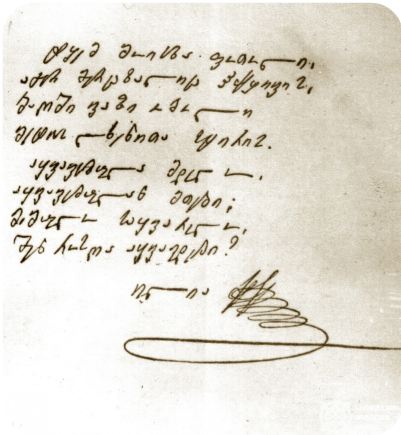 ტყემ მოისხა ფოთოლი,
აგერ მერცხალიც ჭყივის,
ბაღში ვაზი ობოლი
მეტის ლხენითა სტირის.
აყვავებულა მდელო,
აყვავებულან მთები;
მამულო საყვარელო,
შენ როსღა აყვავდები?
ილია